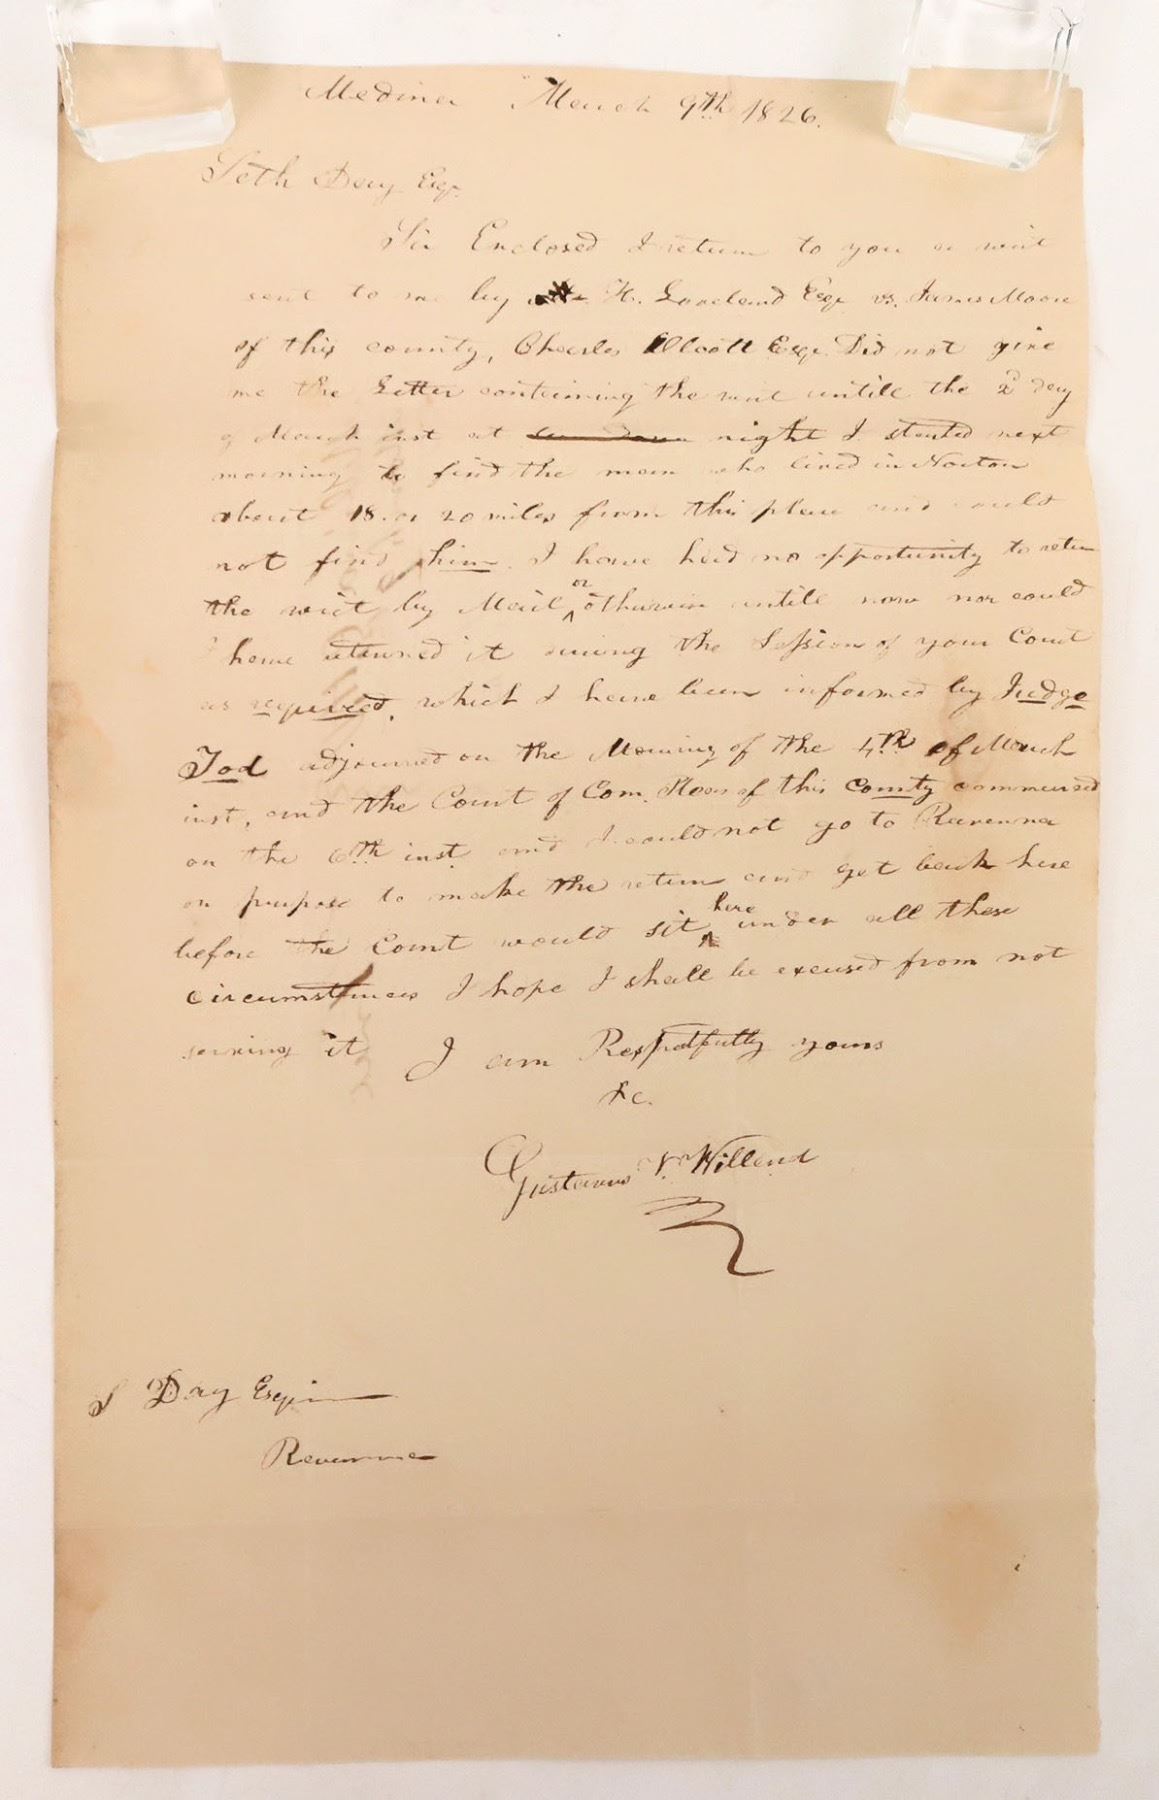 Medina March 9th 1826.
Seth Day Esqr.
Sir Enclosed I return to you a writ
sent to me by H. Loveland Esqr vs. James Moore
of this county, Charles Olcott Esqr. Did not give
me the Letter containing the writ untill the 2d day
of March inst at night I started next
morning to find the man who lived in Norton
about 18. or 20 miles from this place and could
not find him. I have had no opportunity to return
the writ by Mail or otherwise untill now nor could
I have returned it during the Session of your Court
as required, which I have been informed by Judge
Tod adjourned on the Morning of the 4th of March
inst, and the Court of Com. Pleas of this County commenced
on the 6th inst and I could not go to Ravenna
on purpose to make the return and get back here
before the Court would sit here under all these
circumstances I hope I shall be excused from not
serving it I am Respectfully yours
&c.
Gustavus V. Willard
S Day Esqr
Ravenna